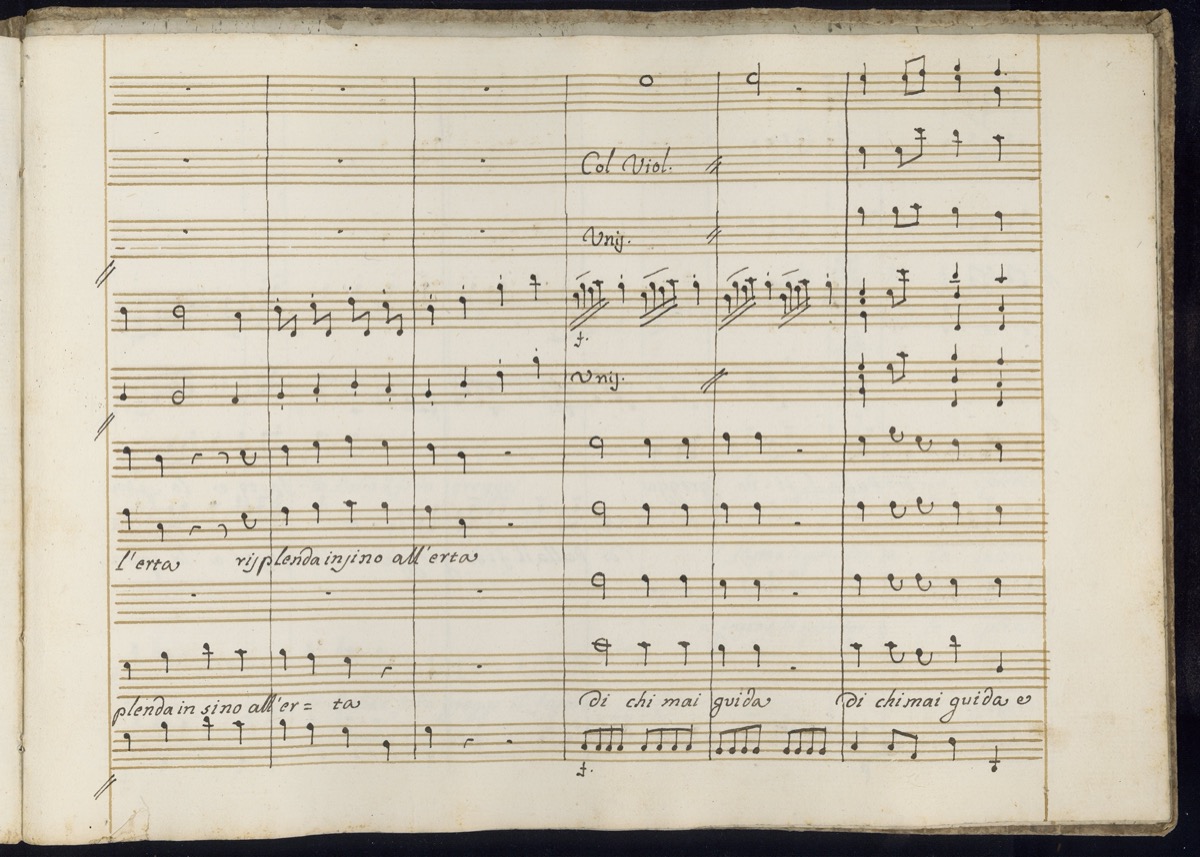 Col Viol.
Unis.
f.
Unis.
l'erta risplenda insino all'erta
plenda in sino all'er= ta di chi mai guida di chi mai guida e
f.